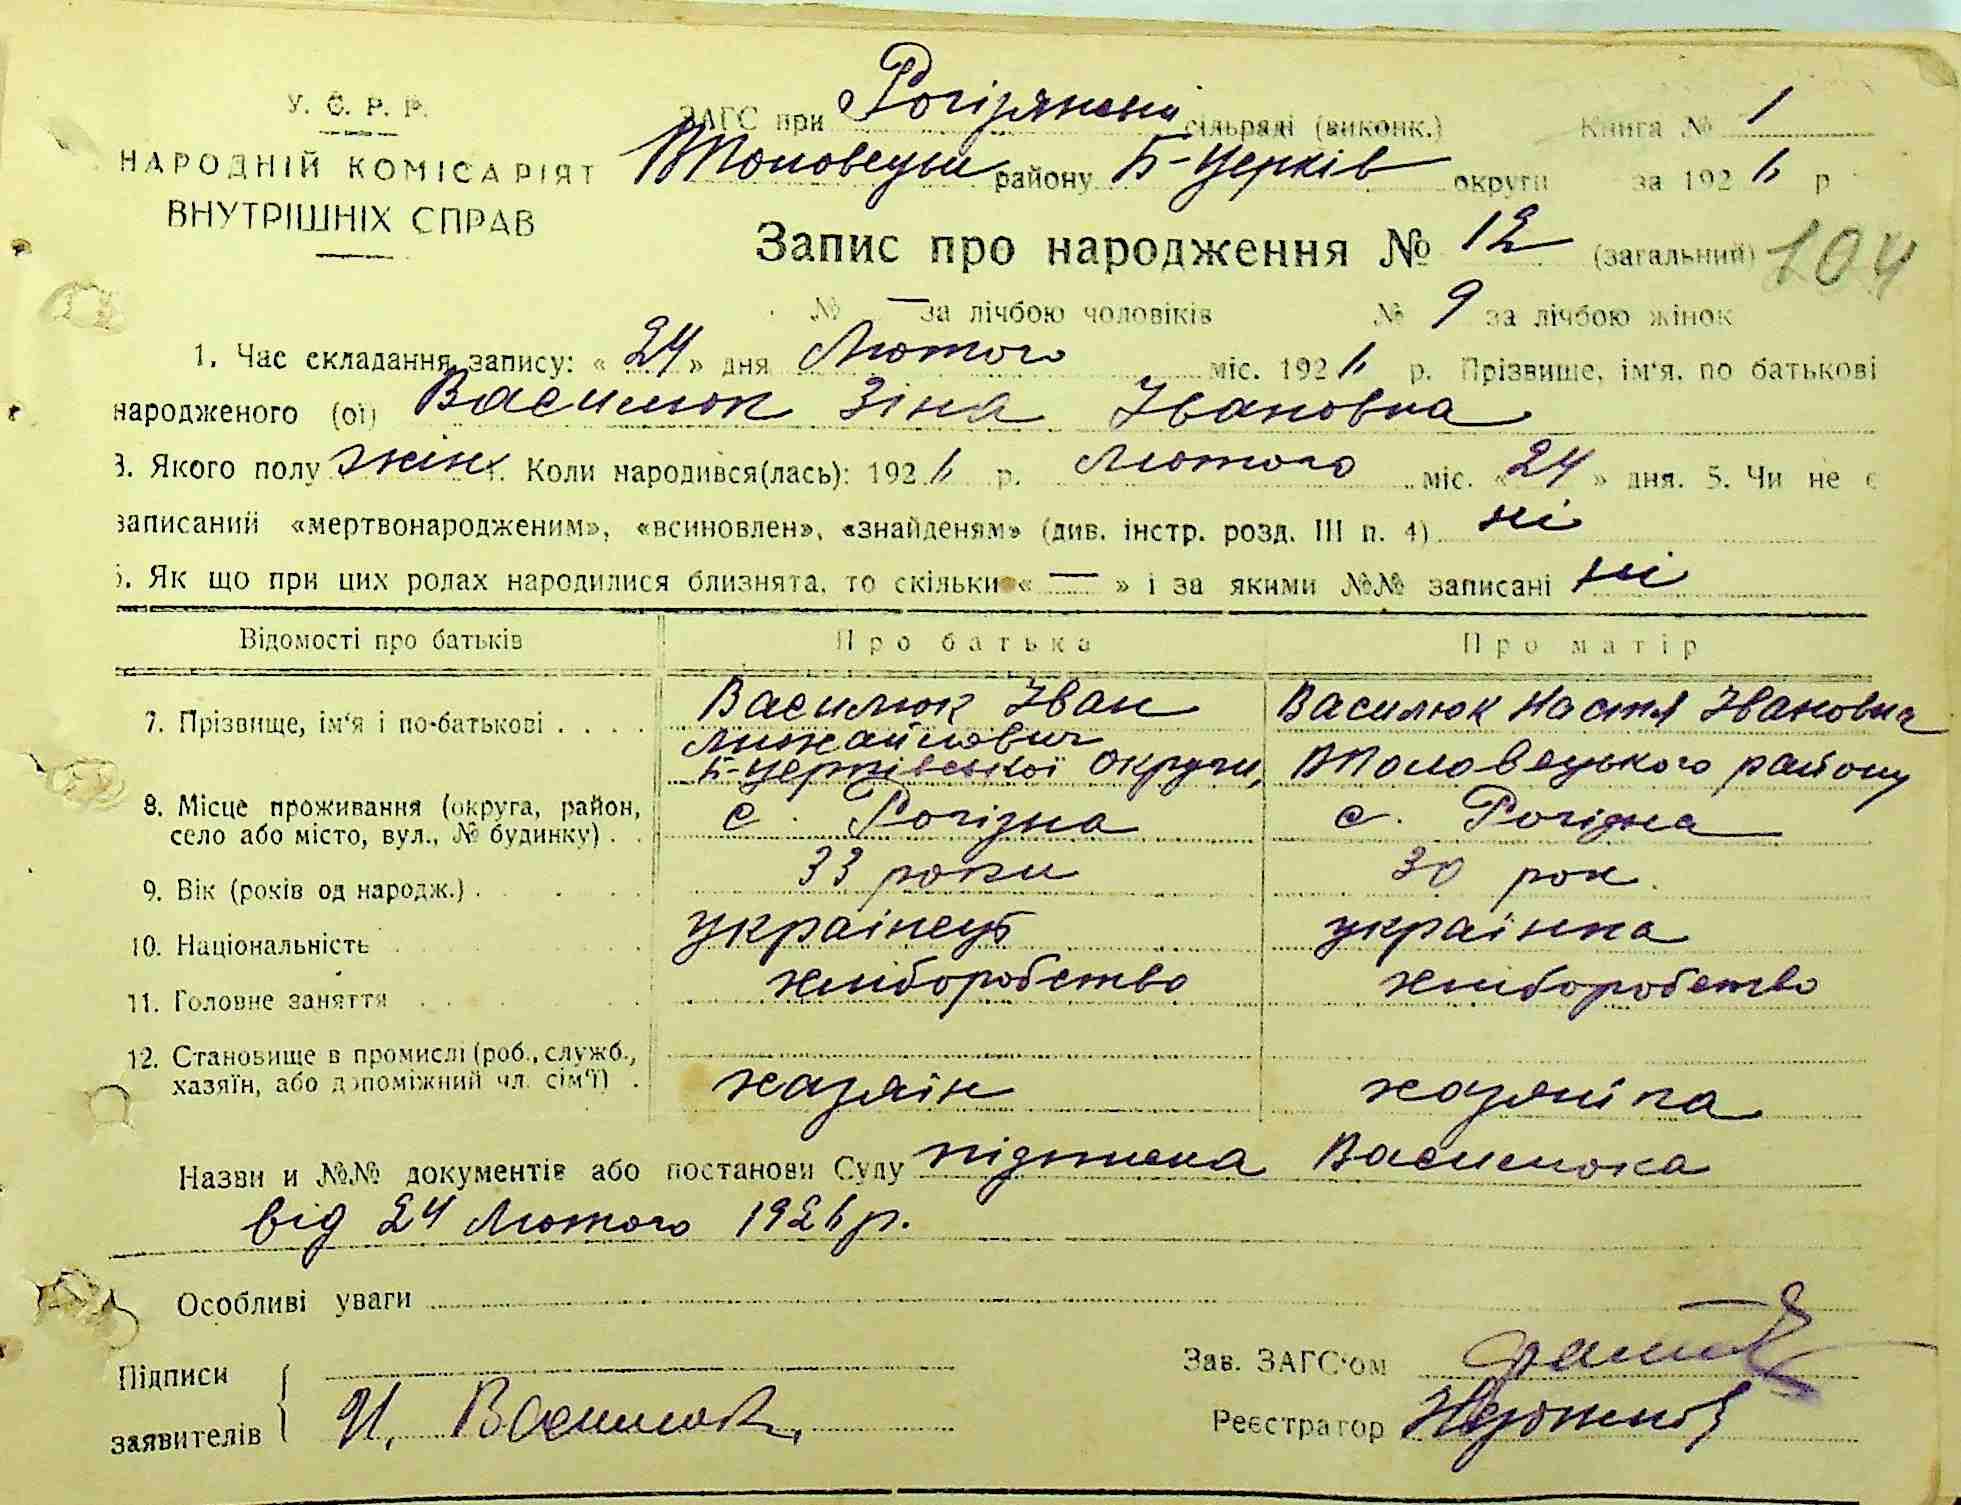 У. С. Р. Р.
НАРОДНІЙ КОМІСАРІЯТ
ВНУТРІШНІХ СПРАВ
ЗАГС при Рогізянскі сільраді (виконк.) Книга № 1
району Б-Церків округи за 1926 р
Запис про народження № 12 (загальний) 104
№ — за лічбою чоловіків № 9 за лічбою жінок
1. Час складання запису: «24» дня Лютого міс. 1926 р. Прізвище, ім'я, по батькові
народженого (ої) Василюк Зіна Івановна
3. Якого полу жін. Коли народився(лась): 1926 р. Лютого міс. «24» дня. 5. Чи не є
записаний «мертвонародженим», «всиновлен», «знайденям» (див. інстр. розд. III п. 4) ні
6. Як що при цих родах народилися близнята, то скільки « — » і за якими №№ записані ні
Відомості про батьків Про батька Про матір
7. Прізвище, ім'я і по-батькові . . . . Василюк Іван Михайлович Василюк Настя Івановна
Б-Церківської Округи, Володвецького району
8. Місце проживання (округа, район, село або місто, вул., № будинку) . . с. Рогізна с. Рогізна
9. Вік (років од народж.) . . . . 33 роки 30 рок.
10. Національність українець українка
11. Головне заняття хліборобство хліборобство
12. Становище в промислі (роб., служб., хазяїн, або допоміжний чл. сім'ї) . хазяїн хазяйка
Назви и №№ документів або постанови Суду підписка Василюка
від 24 Лютого 1926 р.
Особливі уваги
Підписи Зав. ЗАГС'ом
заявителів И. Василюк Реєстратор